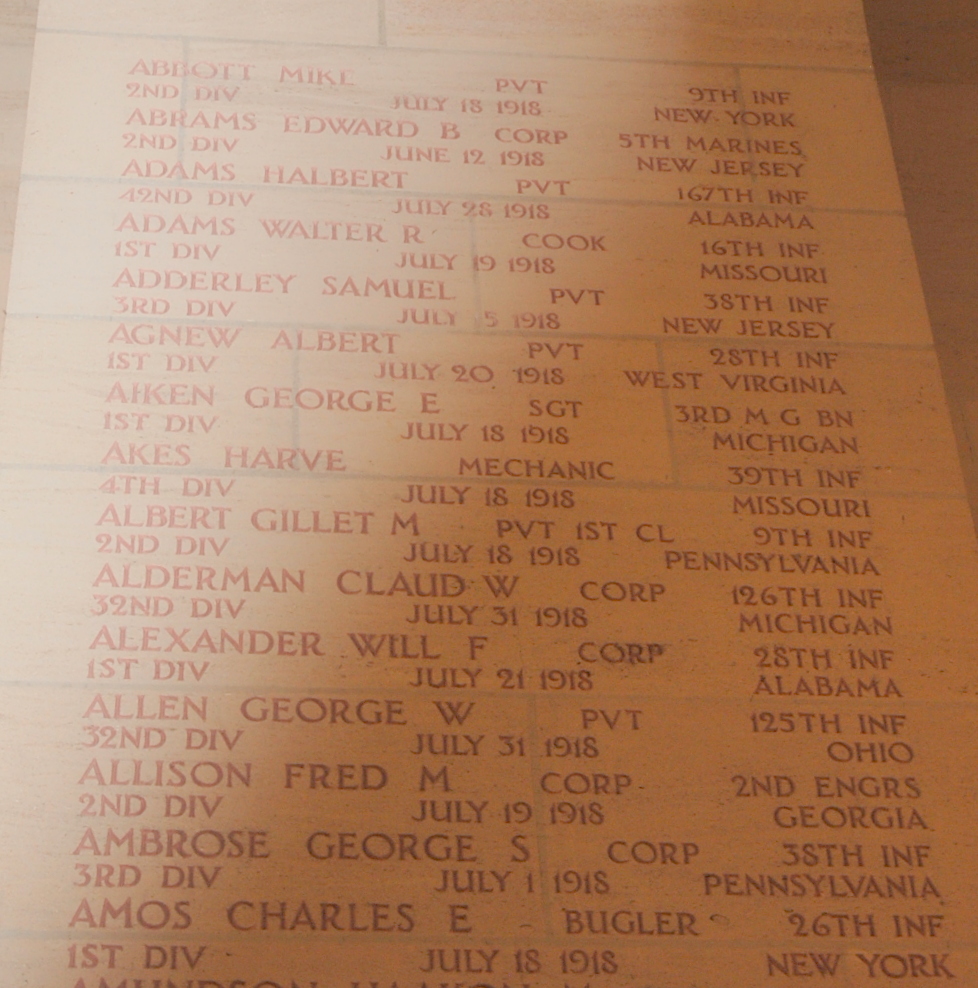 ABBOTT MIKE PVT 9TH INF
2ND DIV JULY 18 1918 NEW YORK
ABRAMS EDWARD B CORP 5TH MARINES
2ND DIV JUNE 12 1918 NEW JERSEY
ADAMS HALBERT PVT 167TH INF
42ND DIV JULY 28 1918 ALABAMA
ADAMS WALTER R COOK 16TH INF
1ST DIV JULY 19 1918 MISSOURI
ADDERLEY SAMUEL PVT 38TH INF
3RD DIV JULY 5 1918 NEW JERSEY
AGNEW ALBERT PVT 28TH INF
1ST DIV JULY 20 1918 WEST VIRGINIA
AIKEN GEORGE E SGT 3RD M G BN
1ST DIV JULY 18 1918 MICHIGAN
AKES HARVE MECHANIC 39TH INF
4TH DIV JULY 18 1918 MISSOURI
ALBERT GILLET M PVT 1ST CL 9TH INF
2ND DIV JULY 18 1918 PENNSYLVANIA
ALDERMAN CLAUD W CORP 126TH INF
32ND DIV JULY 31 1918 MICHIGAN
ALEXANDER WILL F CORP 28TH INF
1ST DIV JULY 21 1918 ALABAMA
ALLEN GEORGE W PVT 125TH INF
32ND DIV JULY 31 1918 OHIO
ALLISON FRED M CORP 2ND ENGRS
2ND DIV JULY 19 1918 GEORGIA
AMBROSE GEORGE S CORP 38TH INF
3RD DIV JULY 1 1918 PENNSYLVANIA
AMOS CHARLES E BUGLER 26TH INF
1ST DIV JULY 18 1918 NEW YORK